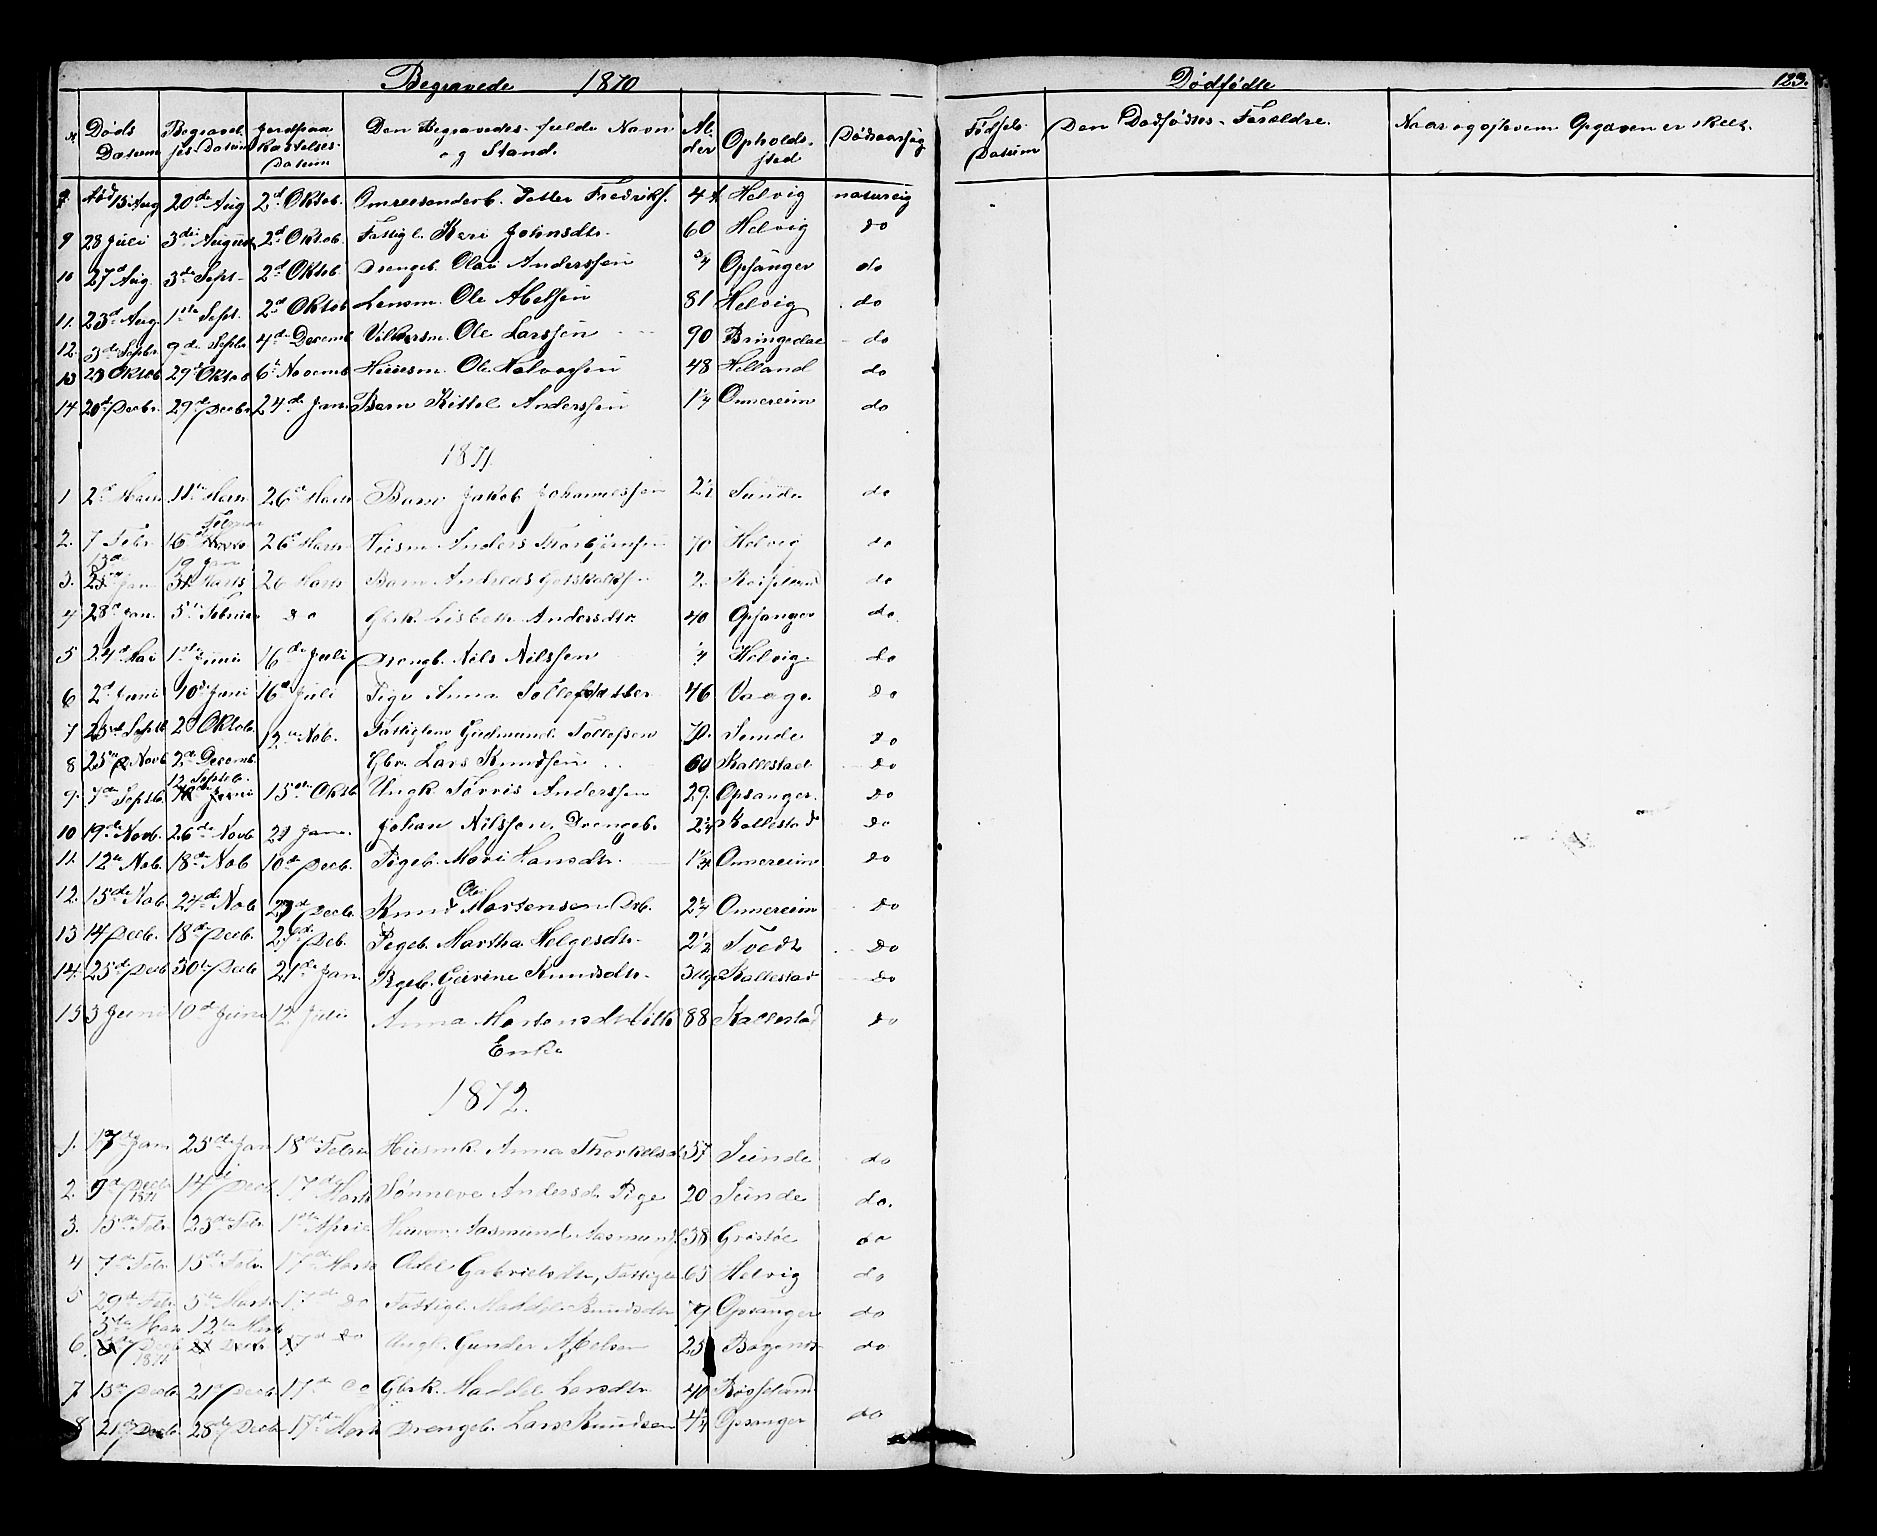 Begravede 1870
N Døds Datum Begravel ses-Datum Jordpaa kastelses Datum Den Begravedes fulde Navn og Stand. Al der Opholds- sted Dødsaarsag
8 13 Aug 20de Aug 2d Oktob. Fredriks. 44 Helvig naturlig
9 28 Juli 3die August 2d Oktob. Fattigl. Kari Johnsdtr. 60 Helvig do
10 27d Aug. 3d Sept. 2d Oktob. Drengb. Olai Anderssen 3/4 Opsanger do
11. 23d Aug. 1ste Sept. 2d Oktob Lensm. Ole Abelsen 81 Helvig do
12. 3de Septbr 9de Septbr 4de Decemb Ole Larssen 90 Bringedal do
13 23 Oktob 29d Oktob 6t Novemb Huusm. Ole Halvorsen 48 Helland do
14. 20de Decbr. 29de Decbr 24de Jan. Barn Kittel Anderssen 1 1/4 Onnereim do
1871.
1 2d Marts 11te Marts 26d Marts Barn Jakob Johannessen 2 1/2 Sunde do
2. 7 Febr 16d Februar 26d Marts Huusm Anders Thorbjørnsen 70 Helvig do
3. 13de Jan 19 Jan 26 Marts Barn Andreas Gotskalksen 2. do
4 28d Jan. 5te Februar do Gbrk. Lisbeth Andersdtr. 40 Opsanger do.
5 24d Mai 1ste Juni 16de Juli Drengb. Nils Nilssen 1/4 Helvig do
6 2d Juni 10d Juni 16d Juli Pige Anna Tollefsdatter 46 Vaage do
7 23d Septb 2d Oktob. 12te Nob. Fattiglem Gudmund Tollefsen 70. Sunde do
8 25de Novb 2de Decemb. Gbr. Lars Knudsen 60 Kallestad do
9. 7de Septb. 12 Septeb. 15de Oktb Ungk. Torris Anderssen 29. Opsanger. do
10 19de Novb. 26de Novb 21 Jan. Johan Nilssen, Drengeb. 2 1/4 Kallestad do
11. 12te Nob. 18de Nob 10de Decb. Pigeb. Mari Hansdtr. 1 1/4 Onnereim do
12. 15de Nob. 24de Nob Decb. Knud Ole Mortensen Drb. 2 1/4 Onnereim do
13 14 Decb. 18de Decb. 27de Deb. Pigeb. Martha Helgesdtr. 2 1/2 Tvedt do
14. 25de Decb 30te Decb 21de Jan. Pigeb. Gurine Knudsdtr. Kallestad do
15 3 Juni 10d Juni 12 Juli Anna Mortensdtr 88 Kallestad do
Enke
1872.
1. 17de Jan 25de Jan 18de Febr. Huusmk. Anna Thorkelsd 57 Sunde do
2. 9d Decb. 1871 14d Decb 17de Marts Sønneve Andersd. Pige 20 Sunde do.
3. 15de Febr. 23de Febr 1ste April Huusm. Aasmund Aasmunds. 38 do
4 7de Febr. 15de Febr. 17de Marts Adel Gabrielsdtr, Fattigl. 65 Helvig do
5 29de Febr. 5te Marts 17de do Fattigl. Maddel. Knudsdtr 79 Opsanger do
6. 5te Mar 12te Marts 17d do Ungk. Gunder Abelsen 25 do
Decb 1871 Decb
7 15de Decb. 21de Decb 17de do Gbrk. Maddel Larsdtr. 40 Røssland
8 21de Decb. 28de Decb 17de Marts Drengeb. Lars Knudsen 4 1/4 Opsanger do
Dødfødte 123.
Fødsels- Datum Den Dødfødtes Forældre. Naar og af hvem Opgaven er skeet.